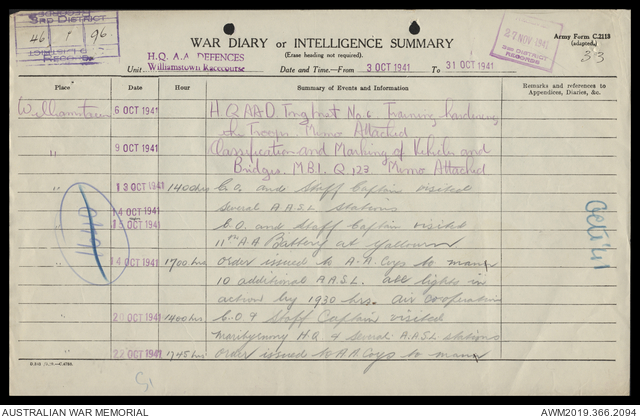 3RD DISTRICT
46 1 96
RECORDS
27 NOV 1941
3RD DISTRICT
RECORDS
WAR DIARY or INTELLIGENCE SUMMARY
(Erase heading not required).
Army Form C.2118
(adapted)
33
H.Q. A.A. DEFENCES
Unit Williamstown Racecourse
Date and Time—From 3 OCT 1941 To 31 OCT 1941
Place Date Hour Summary of Events and Information Remarks and references to
Appendices, Diaries, &c.
Williamstown 6 OCT 1941 HQ AAD Trng Inst No 6. Training, hardening
the Troops. Memo Attached
" 9 OCT 1941 Classification and Marking of Vehicles and
Bridges. M.B.I. Q 123 Memo Attached
" 13 OCT 1941 1400 hrs C.O. and Staff Captain visited
14 OCT 1941 several A.A.S.L. stations
" 15 OCT 1941 C.O. and Staff Captain visited
11th AA Battery at Yallourn
" 14 OCT 1941 1700 hrs Order issued to A.A. Coys to man
10 additional A.A.S.L. all lights in
action by 1930 hrs. Air cooperation
" 20 OCT 1941 1400 hrs C.O & Staff Captain visited
Maribyrnong HQ & several A.A.S.L stations
" 22 OCT 1941 1745 hrs Order issued to A.A Coys to man
Oct '41
AUSTRALIAN WAR MEMORIAL
AWM2019.366.2094